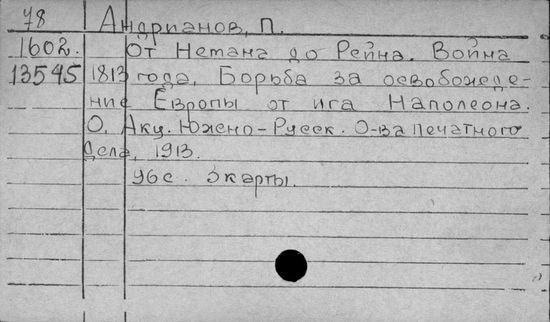 78 Андрианов, П.
1602. От Немана до Рейна. Война
13545 1813 года. Борьба за освобожде-
ние Европы от ига Наполеона.
О. Акц. Южно-Русск. О-ва печатного
дела, 1913.
96 с. 3 карты.